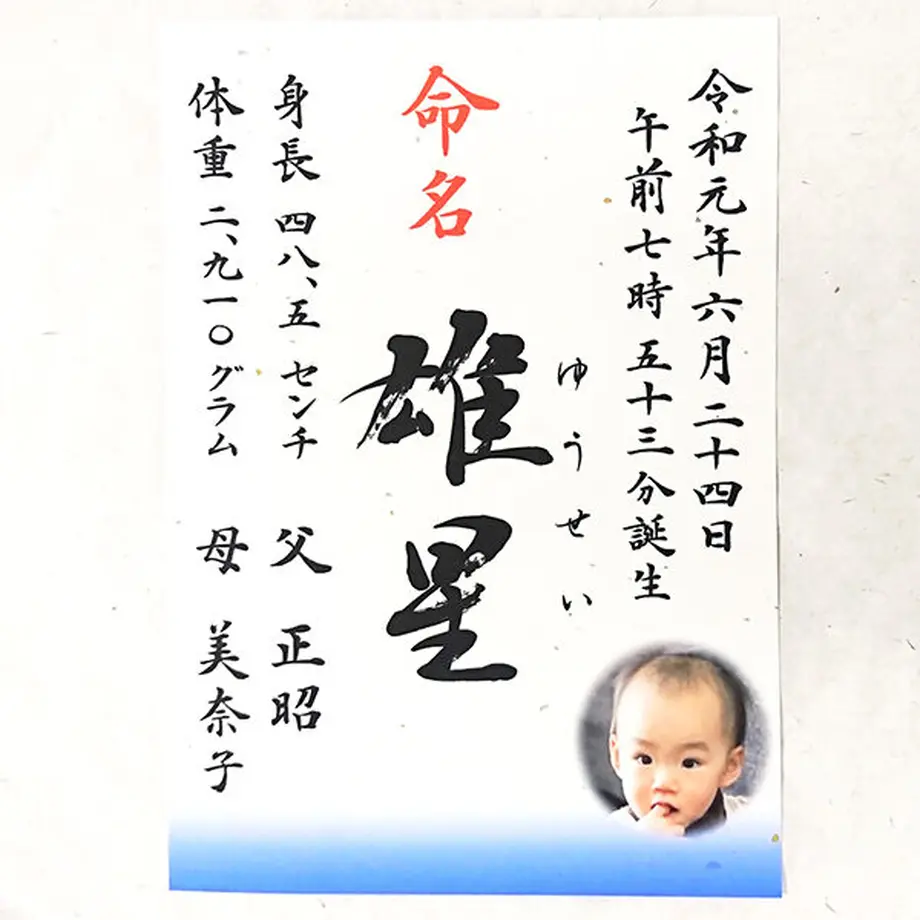 令和元年六月二十四日
午前七時五十三分誕生
ゆうせい
命名 雄星
身長 四八、五 センチ 父 正昭
体重 二、九一〇 グラム 母 美奈子